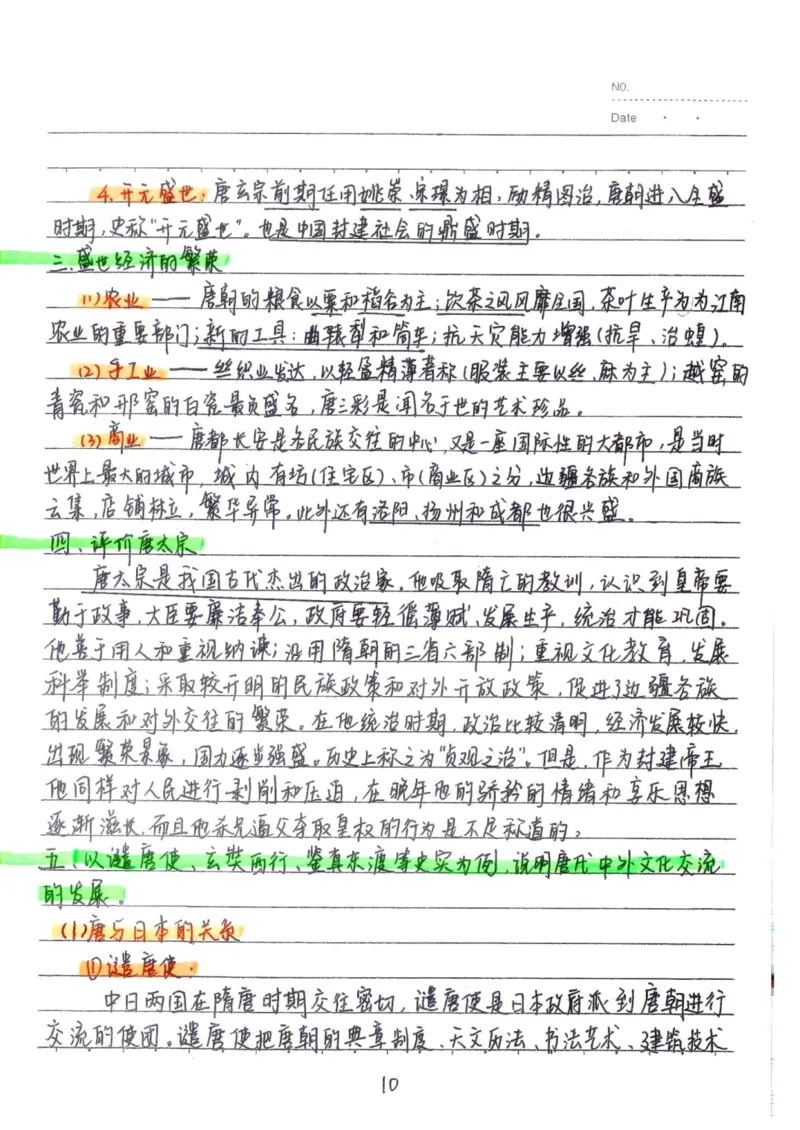 NO.
Date
4.开元盛世：唐玄宗前期任用姚崇、宋璟为相，励精图治，唐朝进入全盛
时期，史称“开元盛世”。也是中国封建社会的鼎盛时期。
三、盛世经济的繁荣
(1)农业——唐朝的粮食以粟和稻谷为主；饮茶之风风靡全国，茶叶生产为为江南
农业的重要部门；新的工具：曲辕犁和筒车；抗天灾能力增强(抗旱、治蝗)。
(2)手工业——丝织业发达，以轻盈精薄著称(服装主要以丝、麻为主)；越窑的
青瓷和邢窑的白瓷最负盛名，唐三彩是闻名于世的艺术珍品。
(3)商业——唐都长安是各民族交往的中心，又是一座国际性的大都市，是当时
世界上最大的城市，城内有坊(住宅区)、市(商业区)之分，边疆各族和外国商旅
云集，店铺林立，繁华异常。此外还有洛阳、扬州和成都也很兴盛。
四、评价唐太宗
唐太宗是我国古代杰出的政治家。他吸取隋亡的教训，认识到皇帝要
勤于政事，大臣要廉洁奉公，政府要轻徭薄赋、发展生产，统治才能巩固。
他善于用人和重视纳谏；沿用隋朝的三省六部制；重视文化教育，发展
科举制度；采取较开明的民族政策和对外开放政策，促进了边疆各族
的发展和对外交往的繁荣。在他统治时期，政治比较清明，经济发展较快，
出现繁荣景象，国力逐步强盛。历史上称之为“贞观之治”。但是，作为封建帝王
他同样对人民进行剥削和压迫，在晚年他的骄矜的情绪和享乐思想
逐渐滋长，而且他杀兄逼父夺取皇权的行为是不足称道的。
五、以遣唐使、玄奘西行、鉴真东渡等史实为例，说明唐代中外文化交流
的发展。
(1)唐与日本的关系
①遣唐使·
中日两国在隋唐时期交往密切，遣唐使是日本政府派到唐朝进行
交流的使团。遣唐使把唐朝的典章制度、天文历法、书法艺术、建筑技术
10